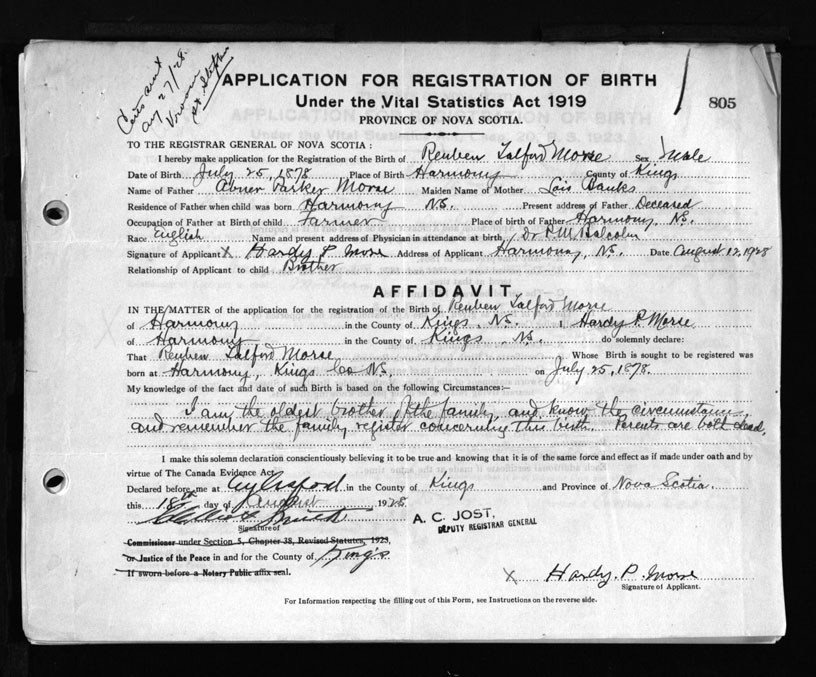 Cert's sent
Aug 27/28.
APPLICATION FOR REGISTRATION OF BIRTH
Under the Vital Statistics Act 1919
PROVINCE OF NOVA SCOTIA.
805
TO THE REGISTRAR GENERAL OF NOVA SCOTIA :
I hereby make application for the Registration of the Birth of Reuben Talford Morse Sex Male
Date of Birth July 25, 1878 Place of Birth Harmony County of Kings
Name of Father Abner Parker Morse Maiden Name of Mother Lois Banks
Residence of Father when child was born Harmony NS. Present address of Father Deceased
Occupation of Father at Birth of child Farmer Place of birth of Father Harmony, NS.
Race English Name and present address of Physician in attendance at birth Dr P.M. Balcolm
Signature of Applicant X Hardy P. Morse Address of Applicant Harmony, NS. Date August 12, 1928
Relationship of Applicant to child Brother
AFFIDAVIT
IN THE MATTER of the application for the registration of the Birth of Reuben Talford Morse
of Harmony in the County of Kings, NS. I, Hardy P. Morse
of Harmony in the County of Kings, NS. do solemnly declare:
That Reuben Talford Morse Whose Birth is sought to be registered was
born at Harmony, Kings Co NS, on July 25, 1878.
My knowledge of the fact and date of such Birth is based on the following Circumstances:-
I am the oldest brother of the family and know the circumstances,
and remember the family register concerning this birth. Parents are both dead,
I make this solemn declaration conscientiously believing it to be true and knowing that it is of the same force and effect as if made under oath and by
virtue of The Canada Evidence Act.
Declared before me at Aylesford in the County of Kings and Province of Nova Scotia.
this 18th day of August 1928
Signature of
A. C. JOST,
DEPUTY REGISTRAR GENERAL
Commissioner under Section 5, Chapter 38, Revised Statutes, 1923,
or Justice of the Peace in and for the County of King's
If sworn before a Notary Public affix seal.
X Hardy. P. Morse
Signature of Applicant.
For Information respecting the filling out of this Form, see Instructions on the reverse side.